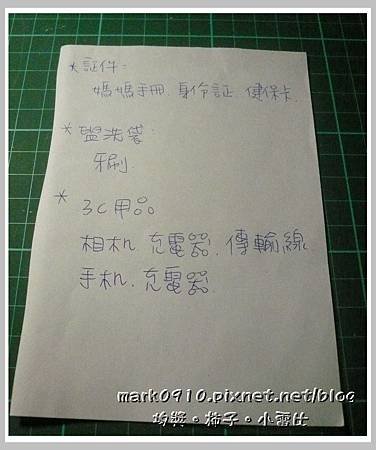 *証件:
媽媽手冊.身份証 健保卡.
*盥洗袋:
牙刷
*
3C用品
相机 充電器.傳輸線
手机.充電器.
mark0910.pixnet.net/blog
柿子•小霸仕